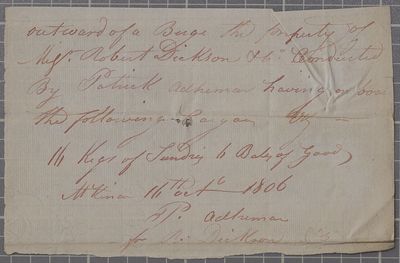 outward of a Barge the property of
Messrs. Robert Dickson & Co. Conducted
By Patrick Adhemar having on board
the following Cargoe Viz
14 Kegs of Sundries 6 Bales of Goods
Mkina 14th Octr 1806
P. Adhemar
for R. Dickson & Co